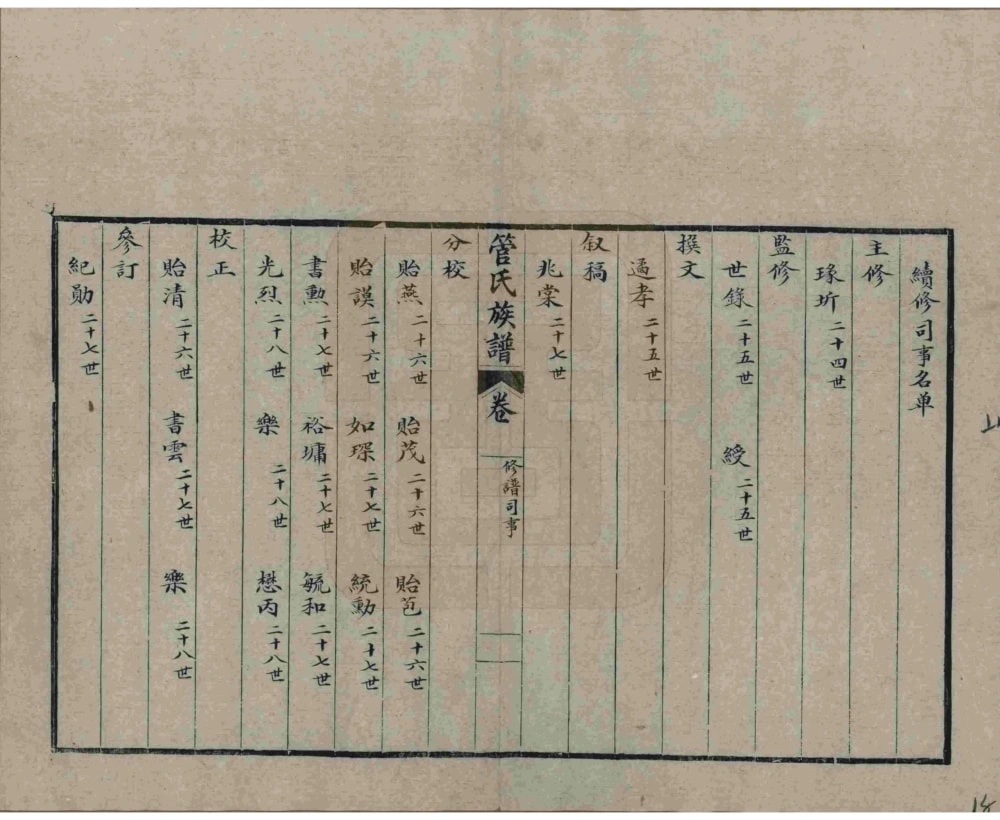 續修司事名單
主修
瑑圻 二十四世
監修
世錄 二十五世 綬 二十五世
撰文
遹孝 二十五世
叙稿
兆棠 二十七世
管氏族譜 卷 修譜司事
分校
貽燕 二十六世 貽茂 二十六世 貽苞 二十六世
貽謨 二十六世 如琛 二十七世 統勳 二十七世
書勲 二十七世 裕墉 二十七世 毓和 二十七世
光烈 二十八世 樂 二十八世 懋丙 二十八世
校正
貽清 二十六世 書雲 二十七世 樂 二十八世
參訂
紀勛 二十七世